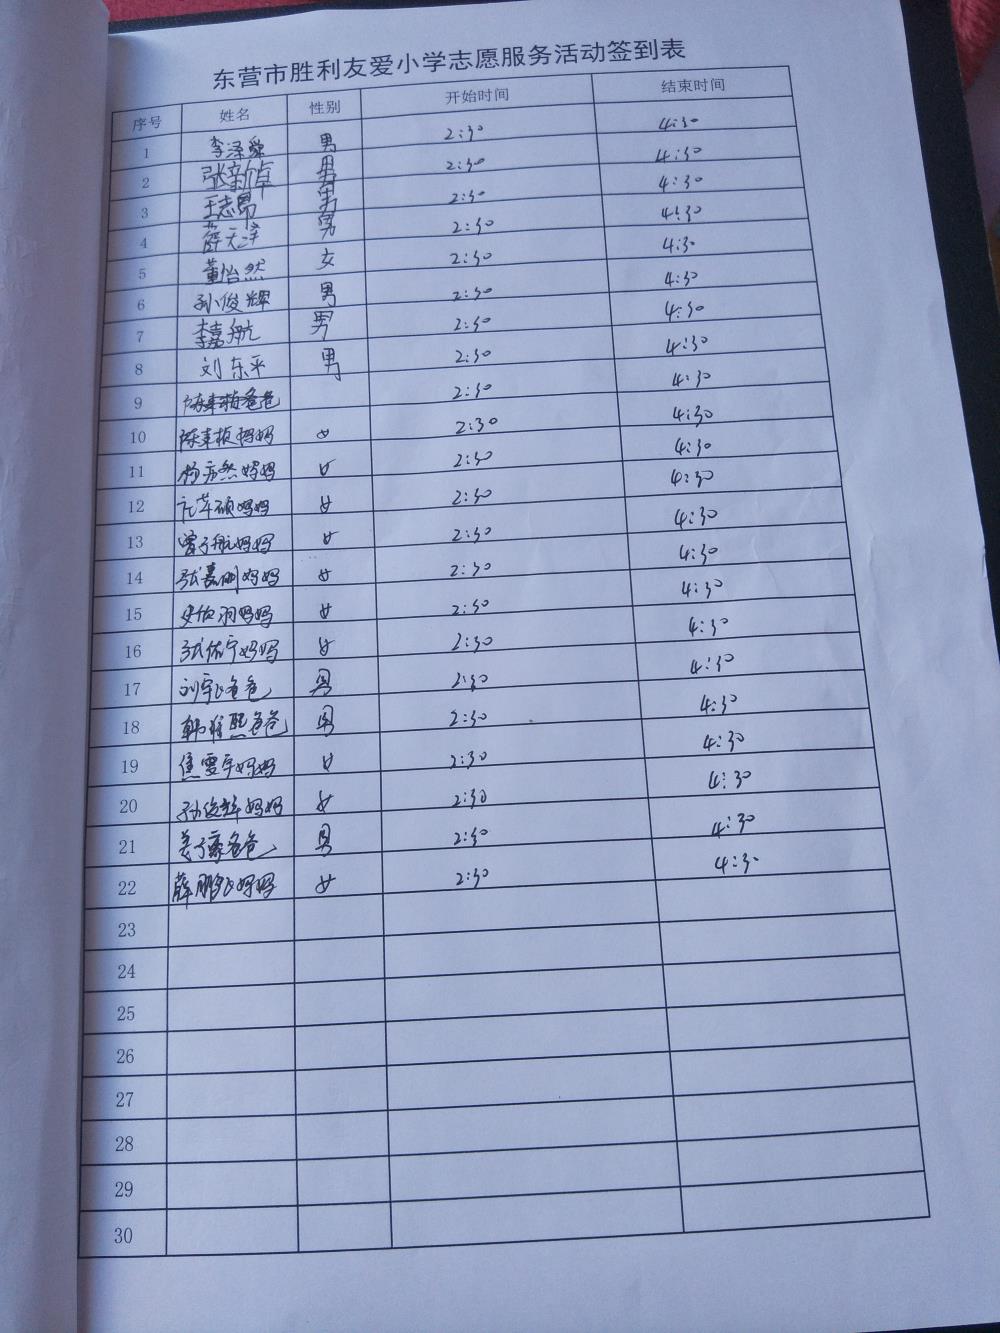 东营市胜利友爱小学志愿服务活动签到表
序号 姓名 性别 开始时间 结束时间
1 李泽舜 男 2:30 4:30
2 张新卓 男 2:30 4:30
3 王志昂 男 2:30 4:30
4 薛天泽 男 2:30 4:30
5 董怡然 女 2:30 4:30
6 孙俊辉 男 2:30 4:30
7 李嘉航 男 2:30 4:30
8 刘东平 男 2:30 4:30
9 爸爸 2:30 4:30
10 妈妈 女 2:30 4:30
11 妈妈 女 2:30 4:30
12 妈妈 女 2:30 4:30
13 曾子航妈妈 女 2:30 4:30
14 妈妈 女 2:30 4:30
15 妈妈 女 2:30 4:30
16 张佑宁妈妈 女 2:30 4:30
17 爸爸 男 2:30 4:30
18 爸爸 男 2:30 4:30
19 妈妈 女 2:30 4:30
20 孙俊辉妈妈 女 2:30 4:30
21 爸爸 男 2:30 4:30
22 妈妈 女 2:30 4:30
23
24
25
26
27
28
29
30